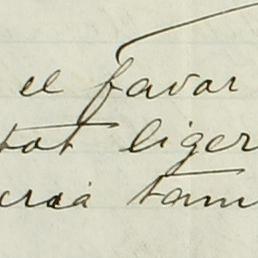 el favor
tot liger
craá tam